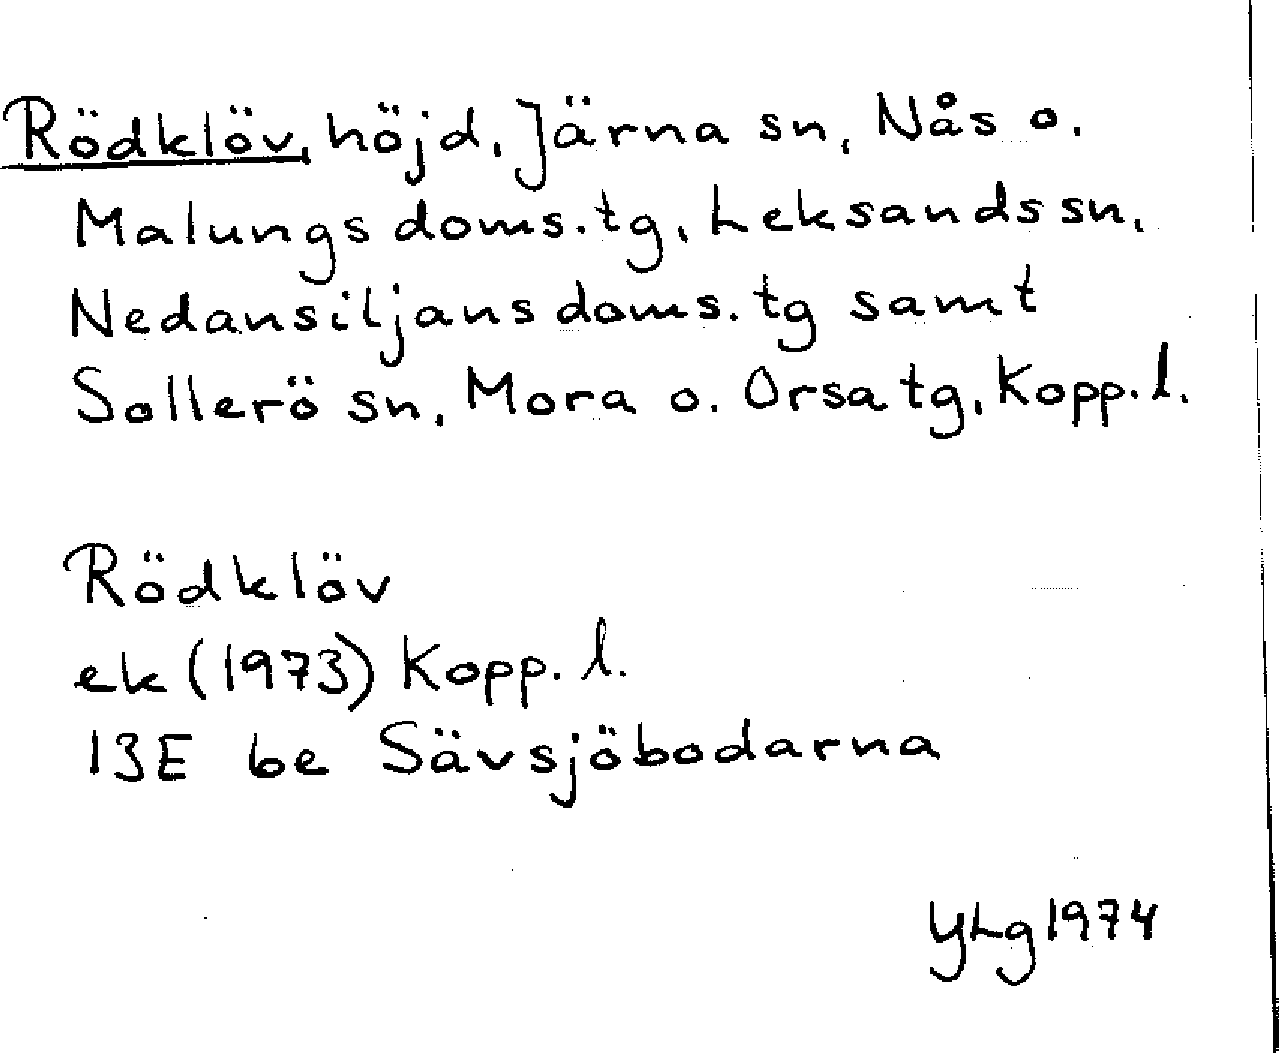 Rödklöv, höjd, Järna sn, Nås o.
Malungs doms.tg, Leksands sn,
Nedansiljans doms.tg samt
Sollerö sn, Mora o. Orsa tg, Kopp.l.
Rödklöv
ek (1973) Kopp. l.
13E be Sävsjöbodarna
YLg 1974